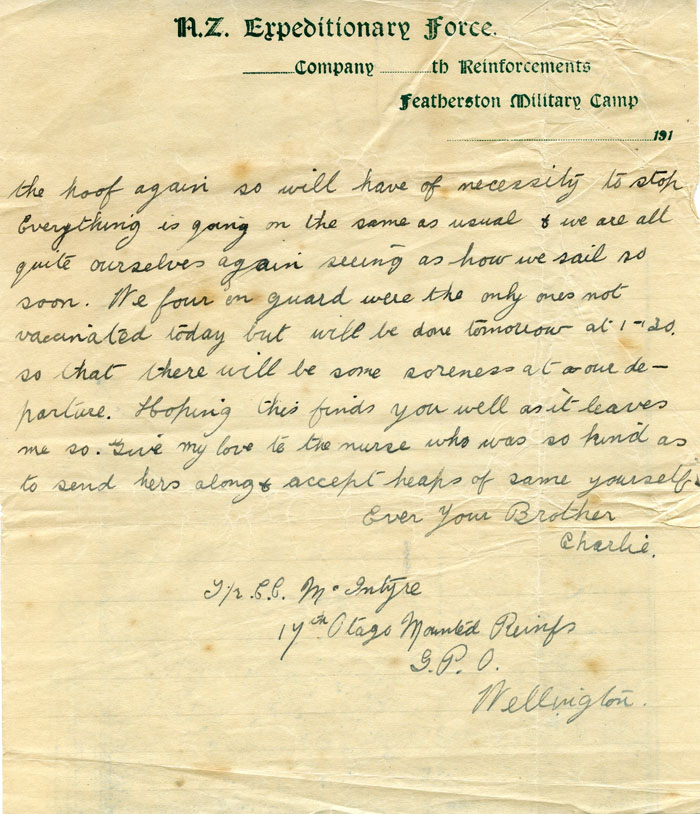 N.Z. Expeditionary Force.
Company th Reinforcements
Featherston Military Camp
191
the hoof again so will have of necessity to stop
Everything is going on the same as usual & we are all
quite ourselves again seeing as how we sail so
soon. We four on guard were the only ones not
vaccinated today but will be done tomorrow at 1-30.
so that there will be some soreness at our de-
parture. Hoping this finds you well as it leaves
me so. Give my love to the nurse who was so kind as
to send hers along & accept heaps of same yourself.
Ever Your Brother
Charlie.
T/r. C.C. McIntyre
17th Otago Mounted Reinfs
G.P.O.
Wellington.